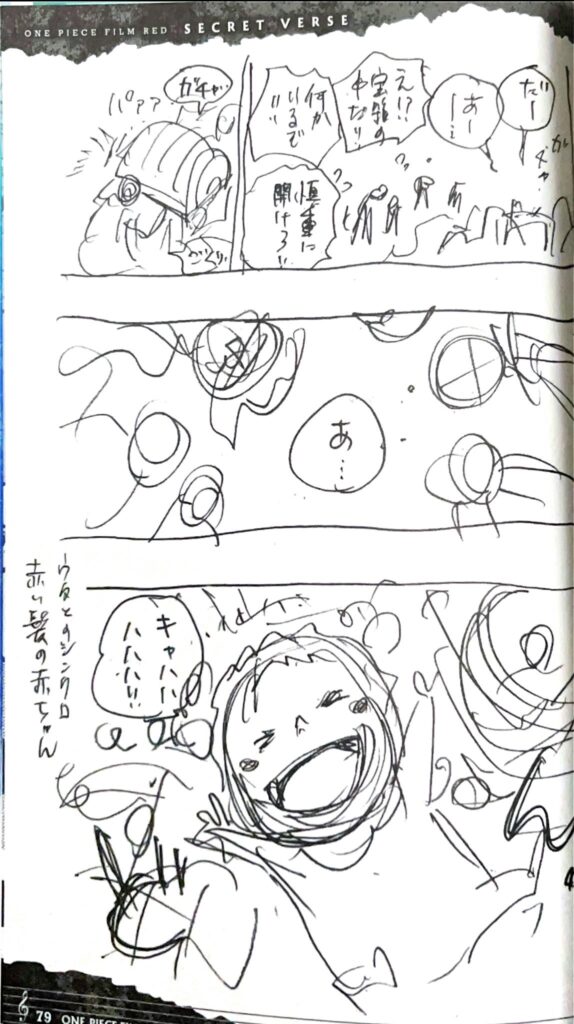 ONE PIECE FILM RED SECRET VERSE
だー
あー
ー…
え!?
宝箱の
中だ!!
何か
いるで
!!
慎重に
開けろ!!
ガチャ
パァァ
あ…
キャハハ
ハハハ!!
ウタとのシンクロ
赤い髪の赤ちゃん
79 ONE PIECE